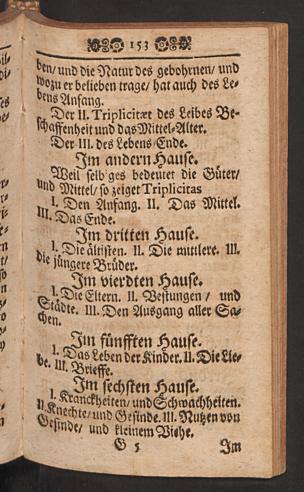 153
ben/ und die Natur des gebohrnen/ und
wozu er belieben trage/ hat auch des Le-
bens Anfang.
Der II. Triplicitæt des Leibes Be-
schaffenheit und das Mittel-Alter.
Der III. des Lebens Ende.
Im andern Hause.
Weil selb'ges bedeutet die Güter/
und Mittel/ so zeiget Triplicitas
I. Den Anfang. II. Das Mittel.
III. Das Ende.
Im dritten Hause.
I. Die ältisten. II. Die mittlere. III.
die jüngere Brüder.
Im vierdten Hause.
I. Die Eltern. II. Vestungen/ und
Städte. III. Den Ausgang aller Sa-
chen.
Im fünfften Hause.
I. Das Leben der Kinder. II. Die Lie-
be. III. Brieffe.
Im sechsten Hause.
I. Kranckheiten/ und Schwachheiten.
II. Knechte/ und Gesinde. III. Nutzen von
Gesinde/ und kleinem Viehe.
G 5 Im